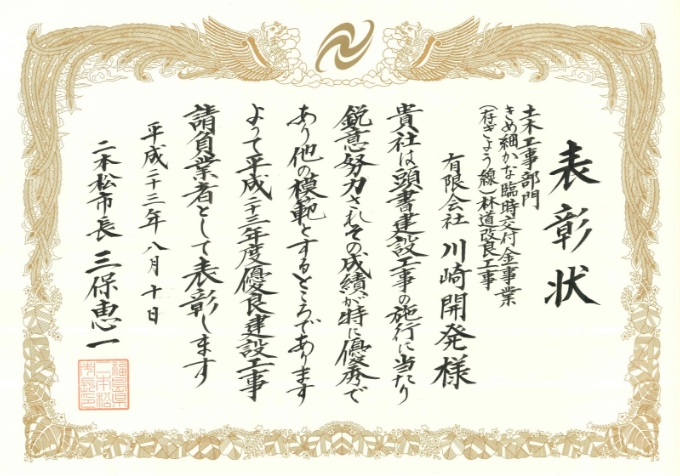 表彰状
土木工事部門
きめ細かな臨時交付金事業
(荏ぎょう線)林道改良工事
有限会社 川崎開発様
貴社は頭書建設工事の施行に当たり
鋭意努力されその成績が特に優秀で
あり他の模範とするところであります
よって平成二十三年度優良建設工事
請負業者として表彰します
平成二十三年八月十日
二本松市長 三保恵一
福島県
二本松
市長印